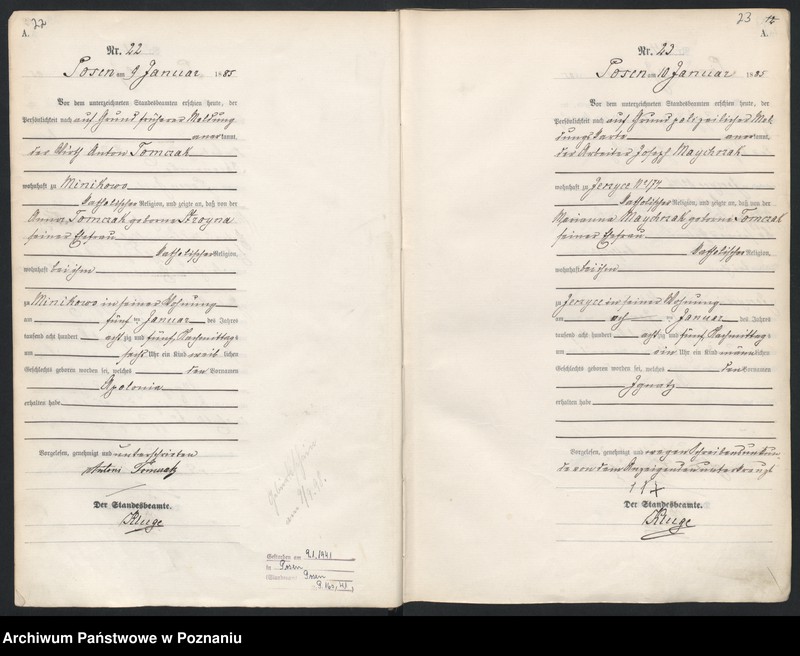 22
A.
Nr. 22
Posen am 9 Januar 1885
Vor dem unterzeichneten Standesbeamten erschien heute, der
Persönlichkeit nach auf Grund früherer Meldung
anerkannt,
der Wirth Anton Tomczak
wohnhaft zu Minikowo
katholischer Religion, und zeigte an, daß von der
Anna Tomczak geborne Stroyna
seiner Ehefrau
katholischer Religion,
wohnhaft bei ihm
zu Minikowo in seiner Wohnung
am fünften Januar des Jahres
tausend acht hundert achtzig und fünf Nachmittags
um sechs Uhr ein Kind weiblichen
Geschlechts geboren worden sei, welches den Vornamen
Apolonia
erhalten habe
Vorgelesen, genehmigt und unterschrieben
Antoni Tomczak
Der Standesbeamte.
Kluge
Gestorben am 9.1.1941
in Posen
(Standesamt) Posen
23
A.
Nr. 23
Posen am 10 Januar 1885
Vor dem unterzeichneten Standesbeamten erschien heute, der
Persönlichkeit nach auf Grund polizeilicher Mel
dungskarte anerkannt,
der Arbeiter Joseph Maychrzak
wohnhaft zu Jerzyce No 174
katholischer Religion, und zeigte an, daß von der
Marianna Maychrzak geborne Tomczak
seiner Ehefrau
katholischer Religion,
wohnhaft bei ihm
zu Jerzyce in seiner Wohnung
am achten Januar des Jahres
tausend acht hundert achtzig und fünf Nachmittags
um ein Uhr ein Kind männlichen
Geschlechts geboren worden sei, welches den Vornamen
Ignatz
erhalten habe
Vorgelesen, genehmigt und wegen Schreibensunkun
de von dem Anzeigenden unterkreuzt
Der Standesbeamte.
Kluge
Archiwum Państwowe w Poznaniu